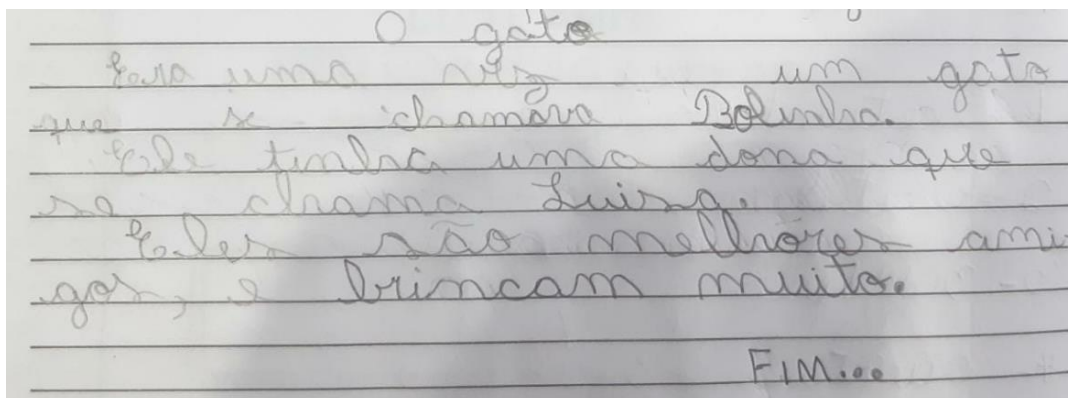 O gato
Era uma vez um gato
que se chamava Bolinha.
Ele tinha uma dona que
se chama Luiza.
Eles são melhores ami
gos, e brincam muito.
FIM...